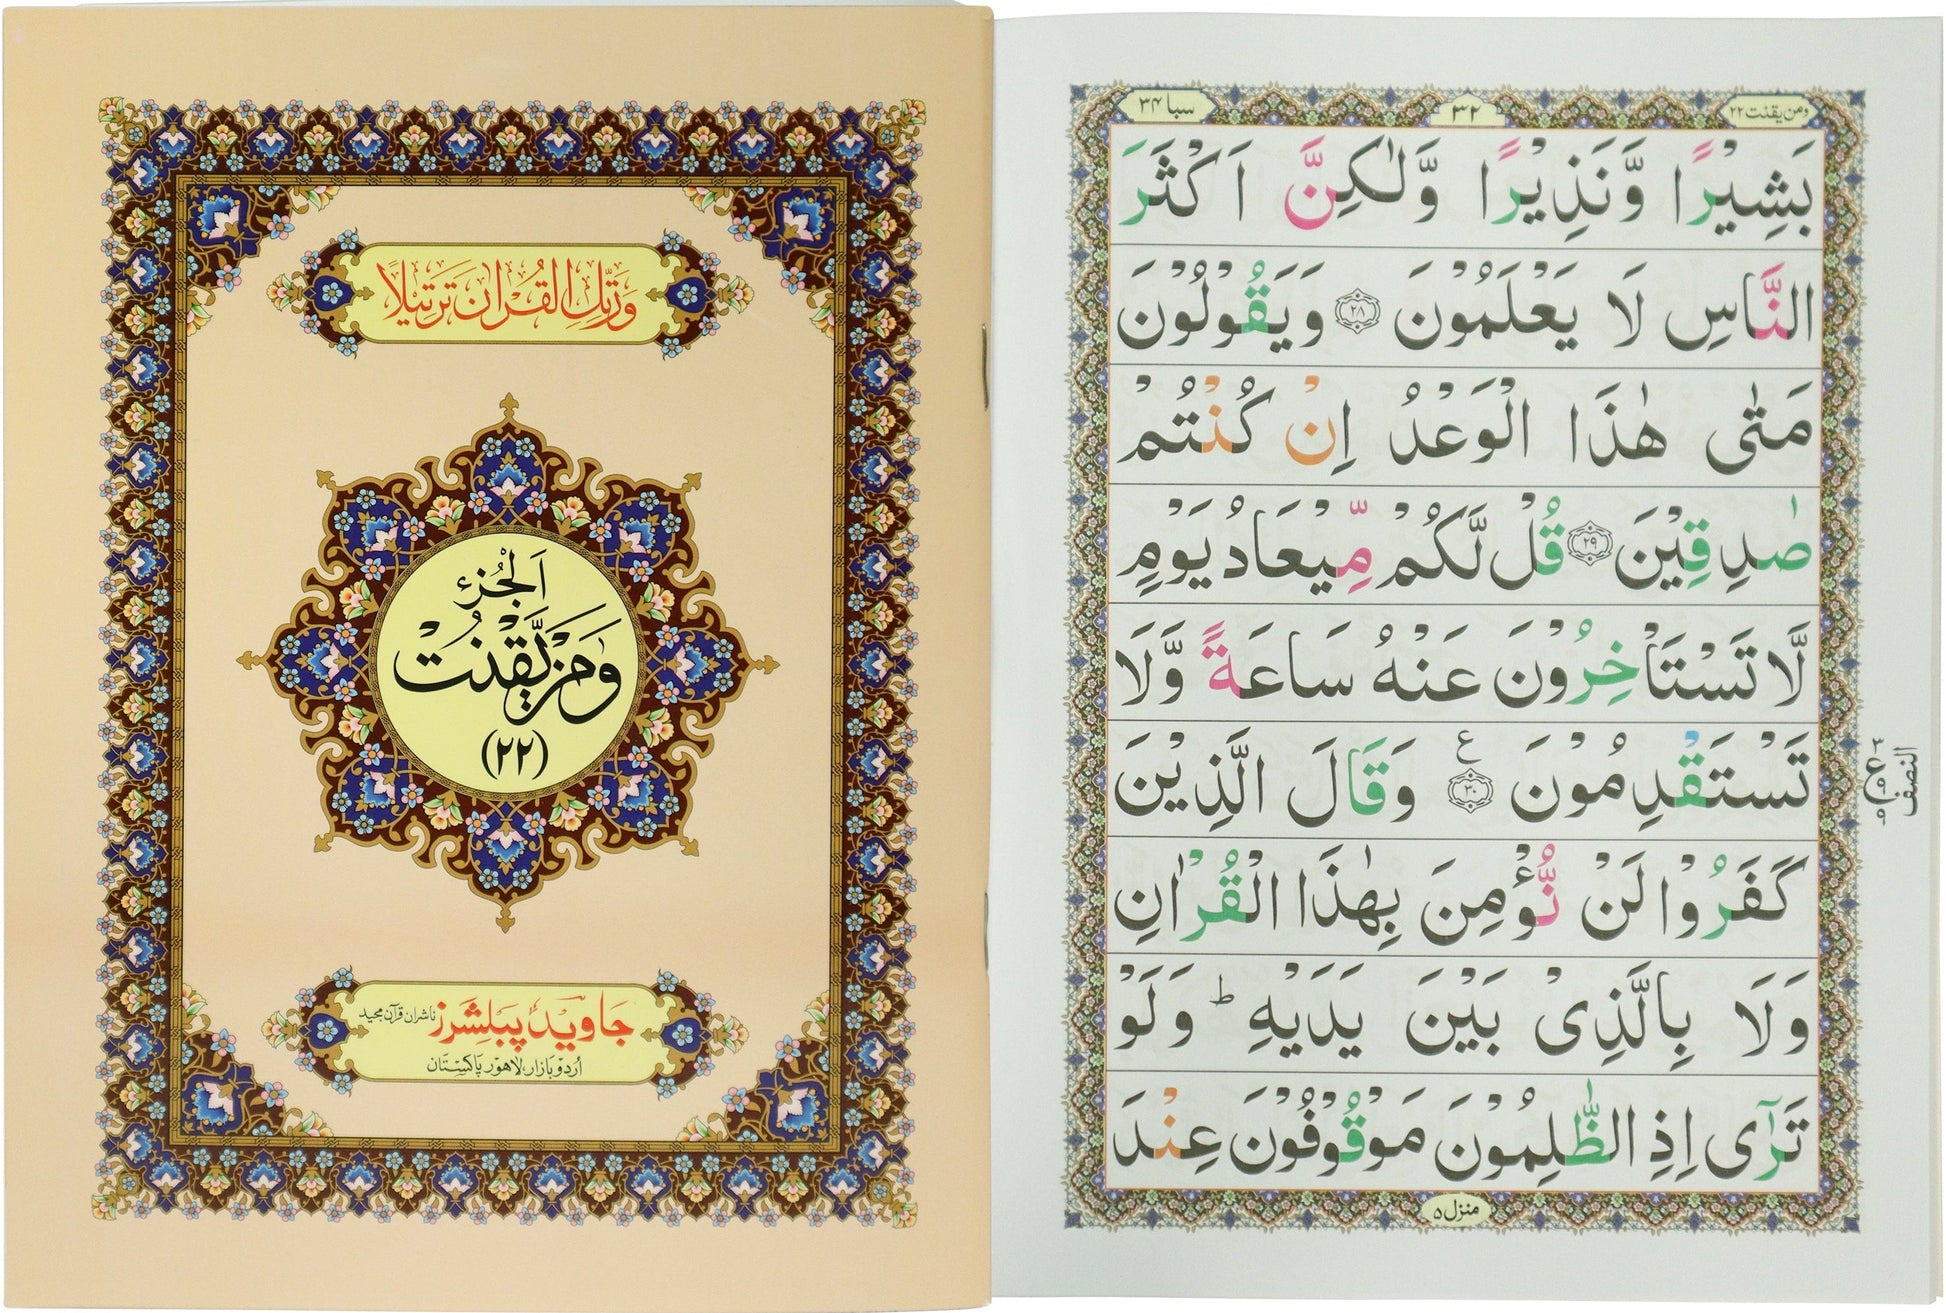 وَرَتِّلِ الْقُرْاٰنَ تَرْتِيْلًا
اَلْجُزْء
وَمَنْ يَّقْنُتْ
(٢٢)
جاوید پبلشرز ناشران قرآن مجید
اُردو بازار، لاہور پاکستان
ومن یقنت ٢٢
٣٢
سبا ٣٤
بَشِيْرًا وَّنَذِيْرًا وَّلٰكِنَّ اَكْثَرَ
النَّاسِ لَا يَعْلَمُوْنَ ٢٨ وَيَقُوْلُوْنَ
مَتٰى هٰذَا الْوَعْدُ اِنْ كُنْتُمْ
صٰدِقِيْنَ ٢٩ قُلْ لَّكُمْ مِّيْعَادُ يَوْمٍ
لَّا تَسْتَاْخِرُوْنَ عَنْهُ سَاعَةً وَّلَا
تَسْتَقْدِمُوْنَ ٣٠ ع وَقَالَ الَّذِيْنَ
كَفَرُوْا لَنْ نُّؤْمِنَ بِهٰذَا الْقُرْاٰنِ
وَلَا بِالَّذِيْ بَيْنَ يَدَيْهِ ط وَلَوْ
تَرٰٓى اِذِ الظّٰلِمُوْنَ مَوْقُوْفُوْنَ عِنْدَ
٣ ع ٩ ٩
النصف
منزل ٥